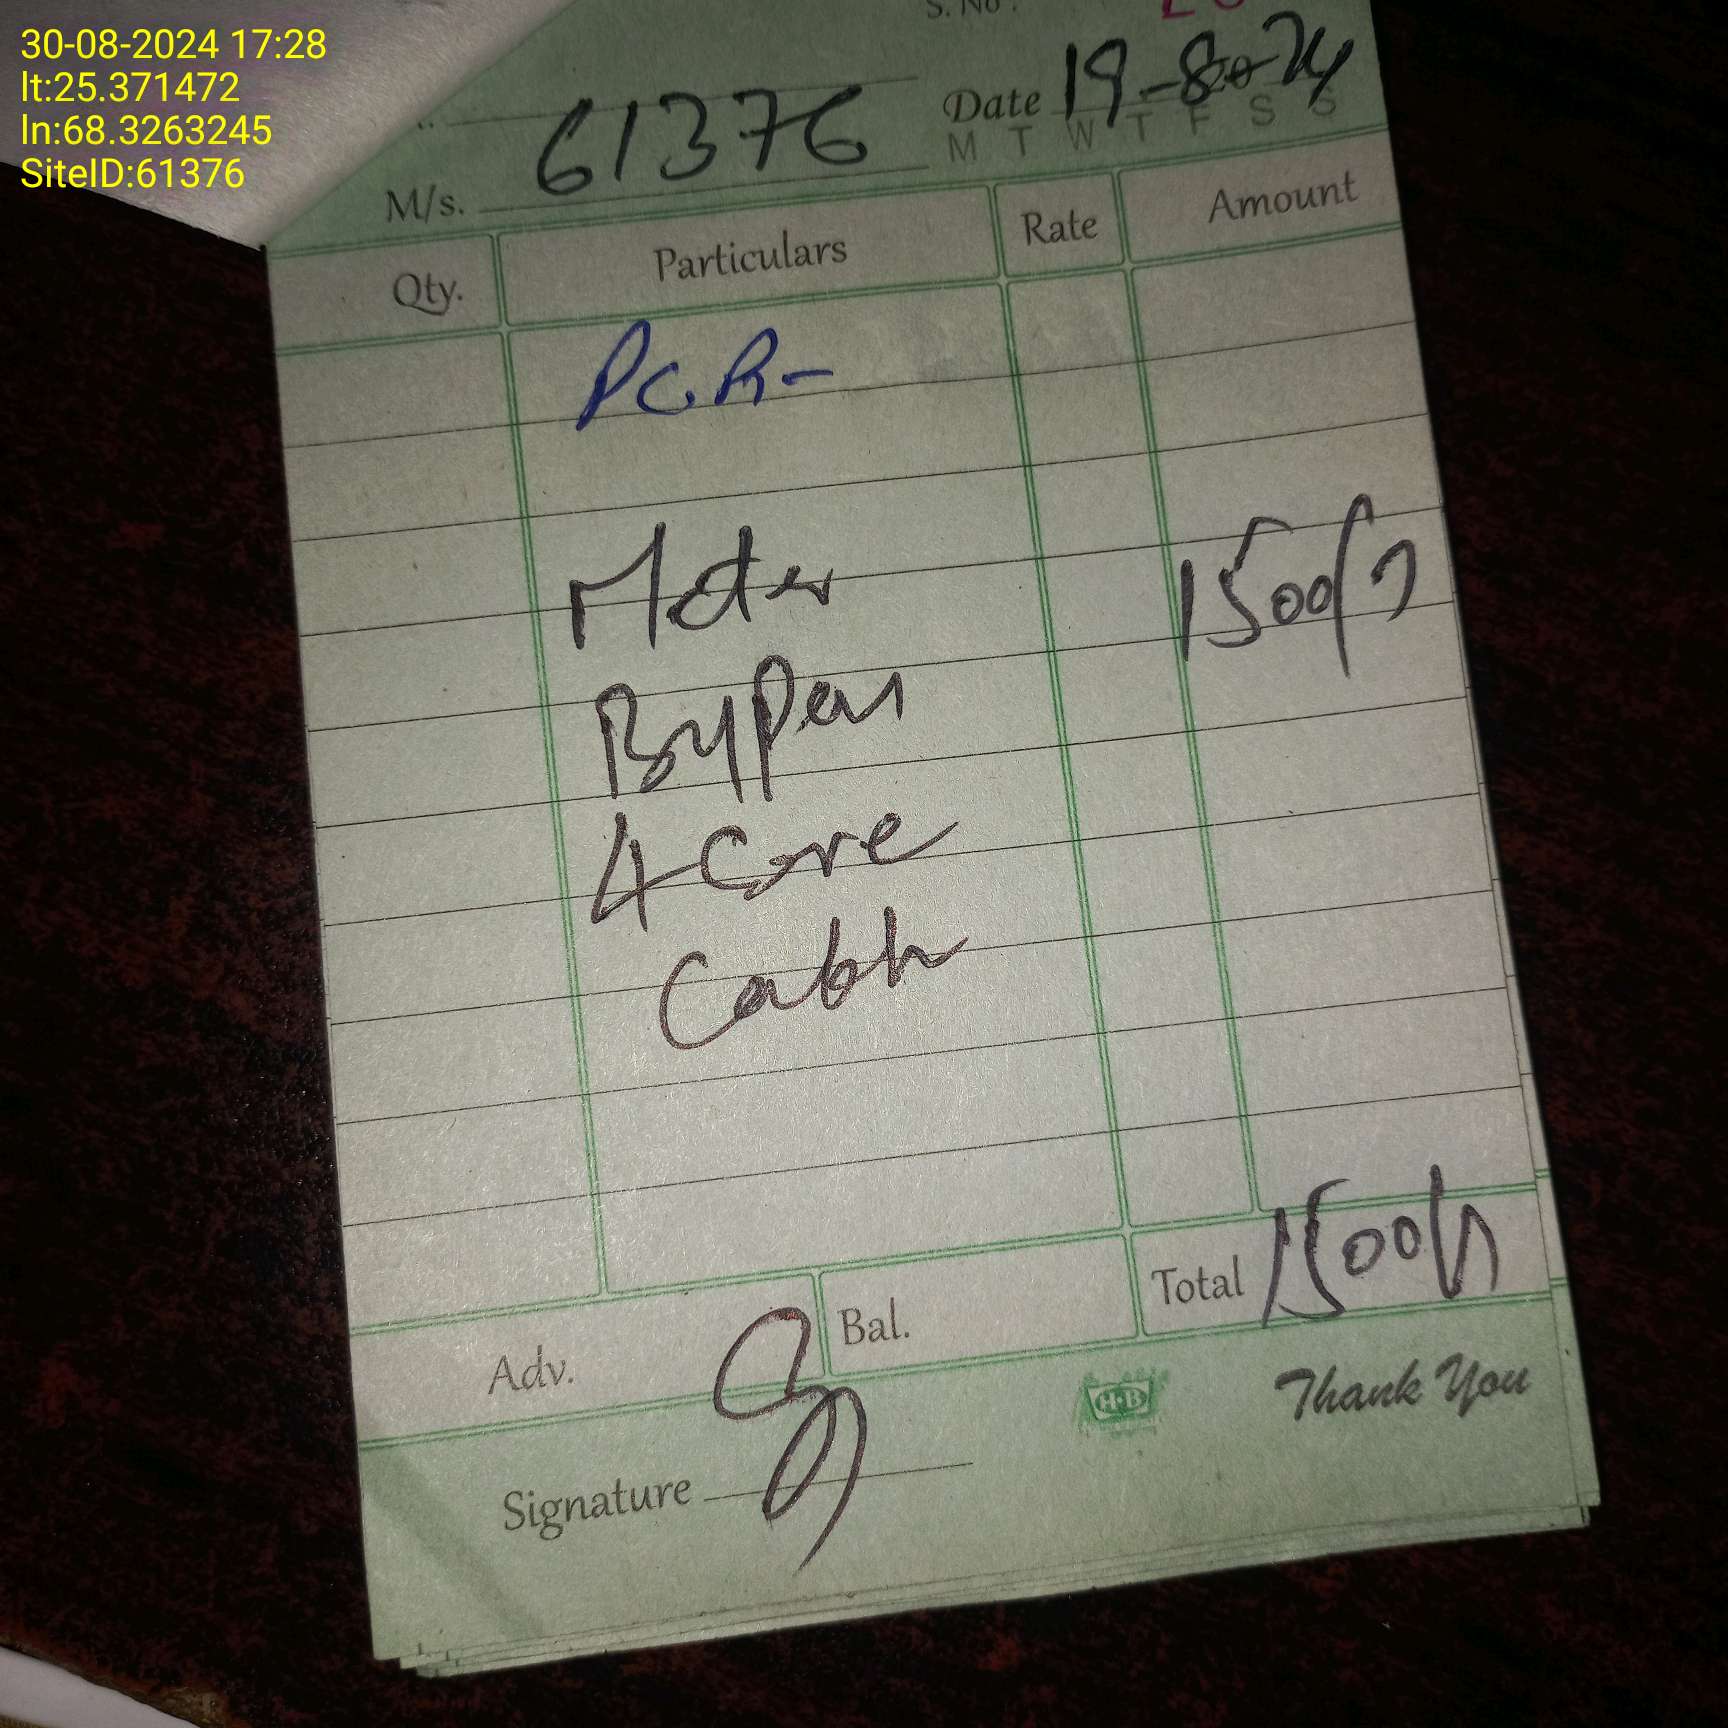 30-08-2024 17:28
lt:25.371472
ln:68.3263245
SiteID:61376
S. No.
Date 19-8-24
M T W T F S S
M/s. 61376
Qty. Particulars Rate Amount
P.G.R-
Meter 1500/-
Bypass
4 Core
Cable
Adv. Bal. Total 1500/-
H-B
Thank You
Signature